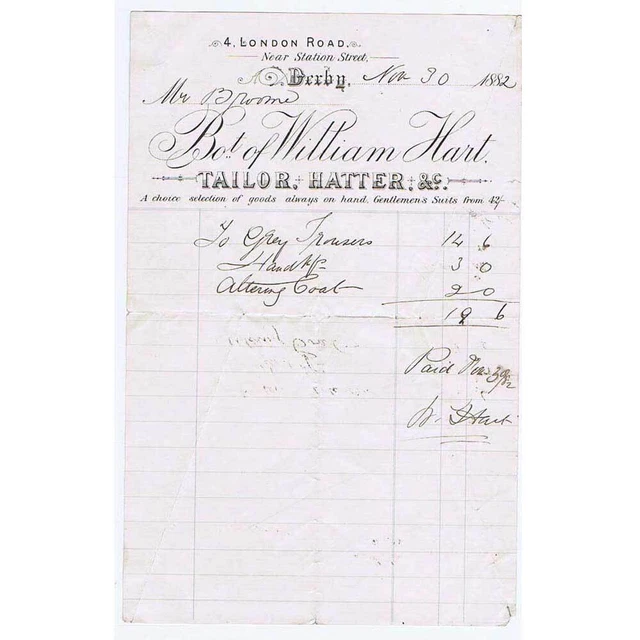 4, LONDON ROAD.
Near Station Street,
Derby, Nov 30 1882
Mr Broome
Bot. of William Hart.
TAILOR, HATTER, &c.
A choice selection of goods always on hand. Gentlemen's Suits from 42/-
To Grey Trousers 14 6
Handkfs 3 0
Altering Coat 2 0
19 6
Paid Nov 30/82
W. Hart